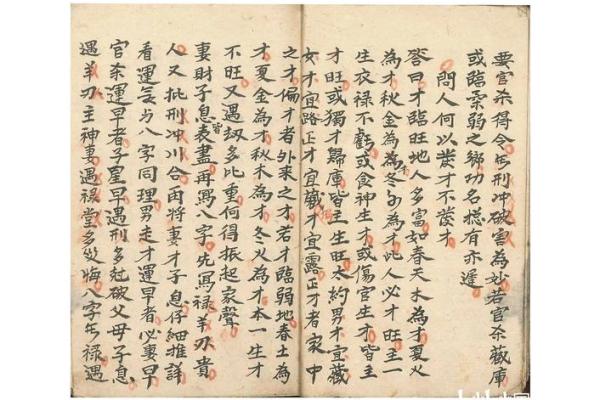 要官杀得令無刑冲破害為妙若官杀藏庫
或臨衰弱之鄉功名揔有亦遲
問人何以發才不發才
答曰才臨旺地人多富如春天木為才夏火
為才秋金為才冬水為才此人必才旺主一
生衣禄不虧或食神生才或傷官生才皆主
才旺或獨才歸庫皆主生旺大約男才宜藏
女才宜路正才宜藏才宜露正才者家中
之才偏才者外来之才若才臨弱地春土為
才夏金為才秋木為才冬火為才本一生才
不旺又遇刼多比重何得振起家聲
妻財子息表皆盡再寫八字先寫禄羊刃貴
人又批刑冲川合丙將妻才子息仔細推詳
看運氣与八字同理男走才運早者必妻早
官杀運早者子星早遇刑多尅破父母子息
遇羊刃主神妻遇禄堂多災悔八字無禄遇